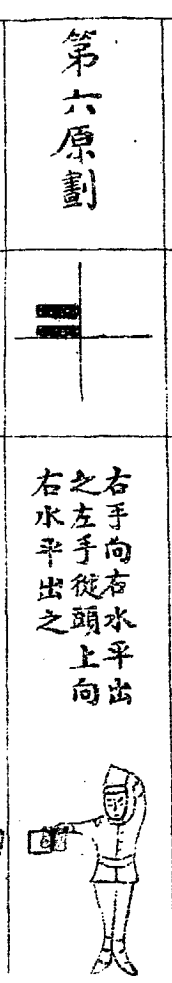 第六原劃
右手向右水平出
之左手從頭上向
右水平出之